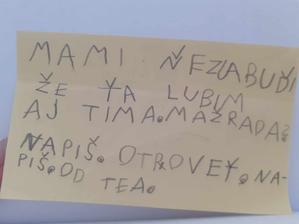 MAMI ŇEZABUĎI
ŽE ŤA LUBIM
AJ TIMA. MAŽRADAŽ
NAPIŠ. OTROVEŤ. NA-
PIŠ. OD TEA.